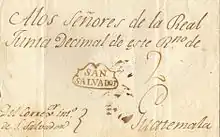 A los Señores de la Real
Junta Decimal de este Rno. de
2
SAN
SALVADOR
Del Correo
de S. Salvador
Guatemala